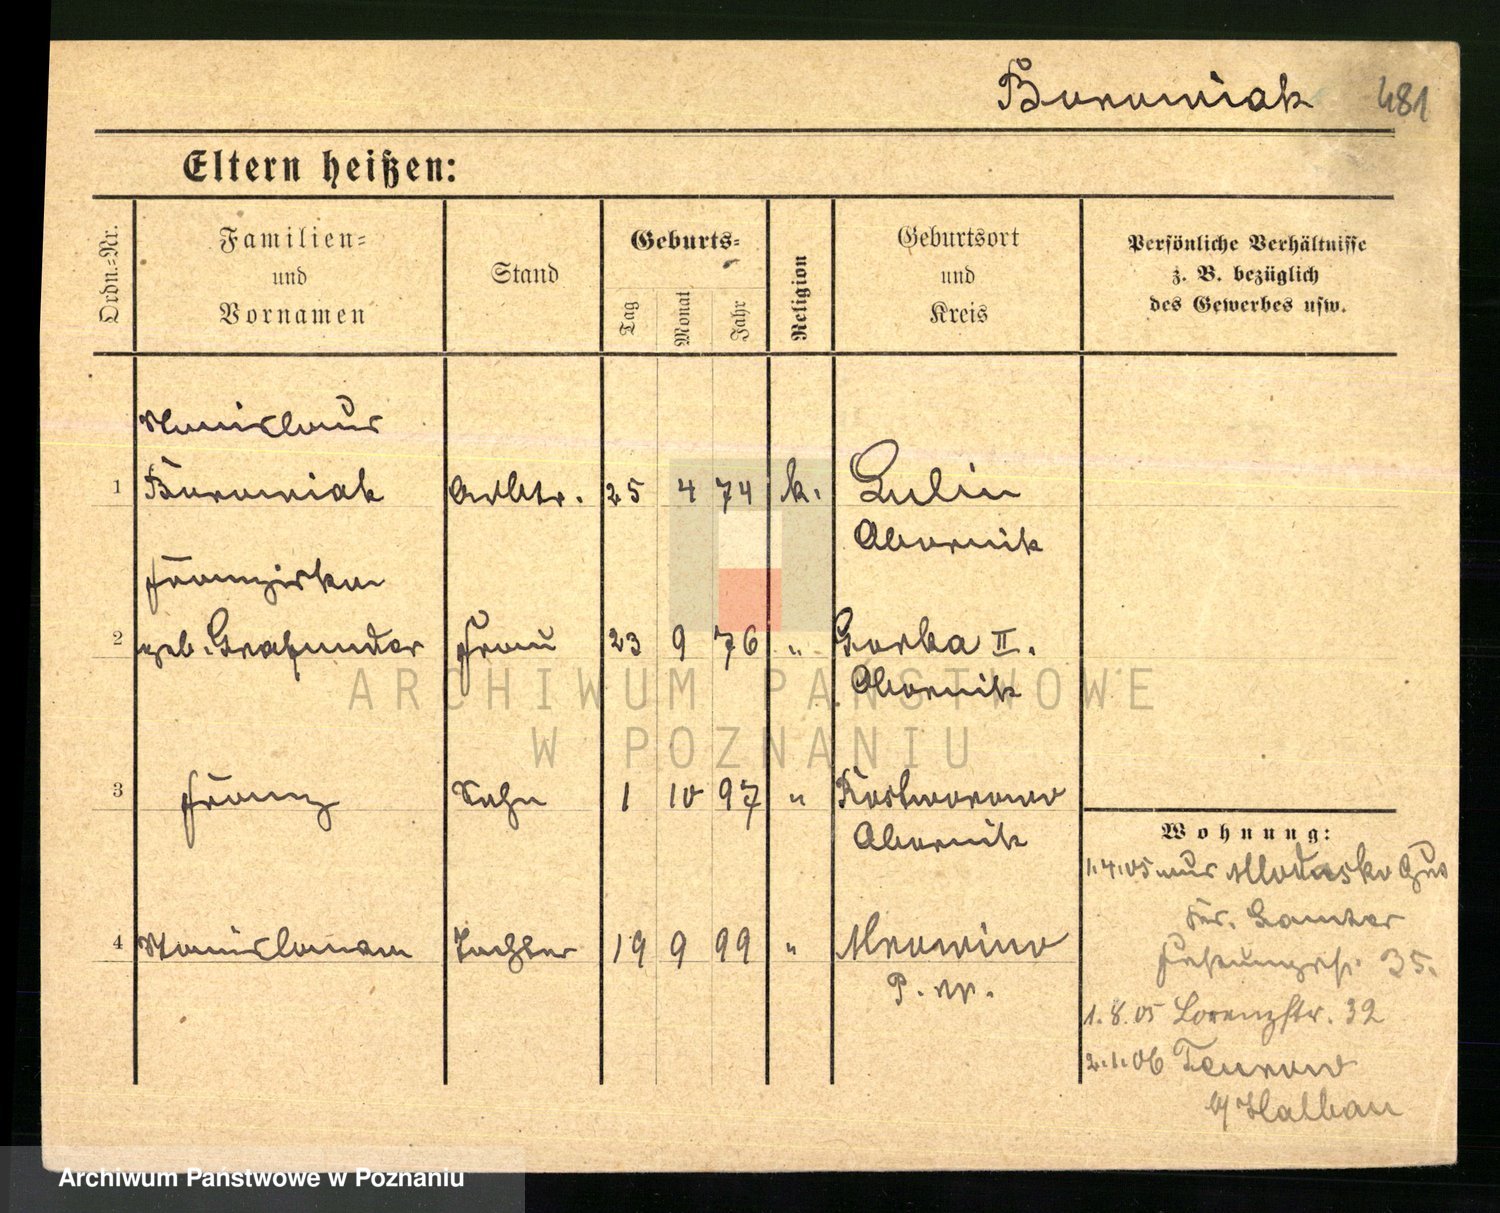 Borowiak 481
Eltern heißen:
Ordn.-Nr.
Familien-
und
Vornamen
Stand
Geburts-
Tag
Monat
Jahr
Religion
Geburtsort
und
Kreis
Persönliche Verhältnisse
z. B. bezüglich
des Gewerbes usw.
Stanislaus
1 Borowiak Arbtr. 25 4 74 k. Lulin
Obornik
Franziska
2 geb. Grafunder Frau 23 9 76 " Gorka II.
Obornik
3 Franz Sohn 1 10 97 " Kostworowo
Obornik
4 Stanislawa Tochter 19 9 99 " Mrowino
P. W.
Wohnung:
1.4.05 aus Mlodasko Gut
Kr. Samter
35.
1.8.05 Lorenzstr. 32
2.1.06
b/ Halbau
ARCHIWUM PAŃSTWOWE
W POZNANIU
Archiwum Państwowe w Poznaniu